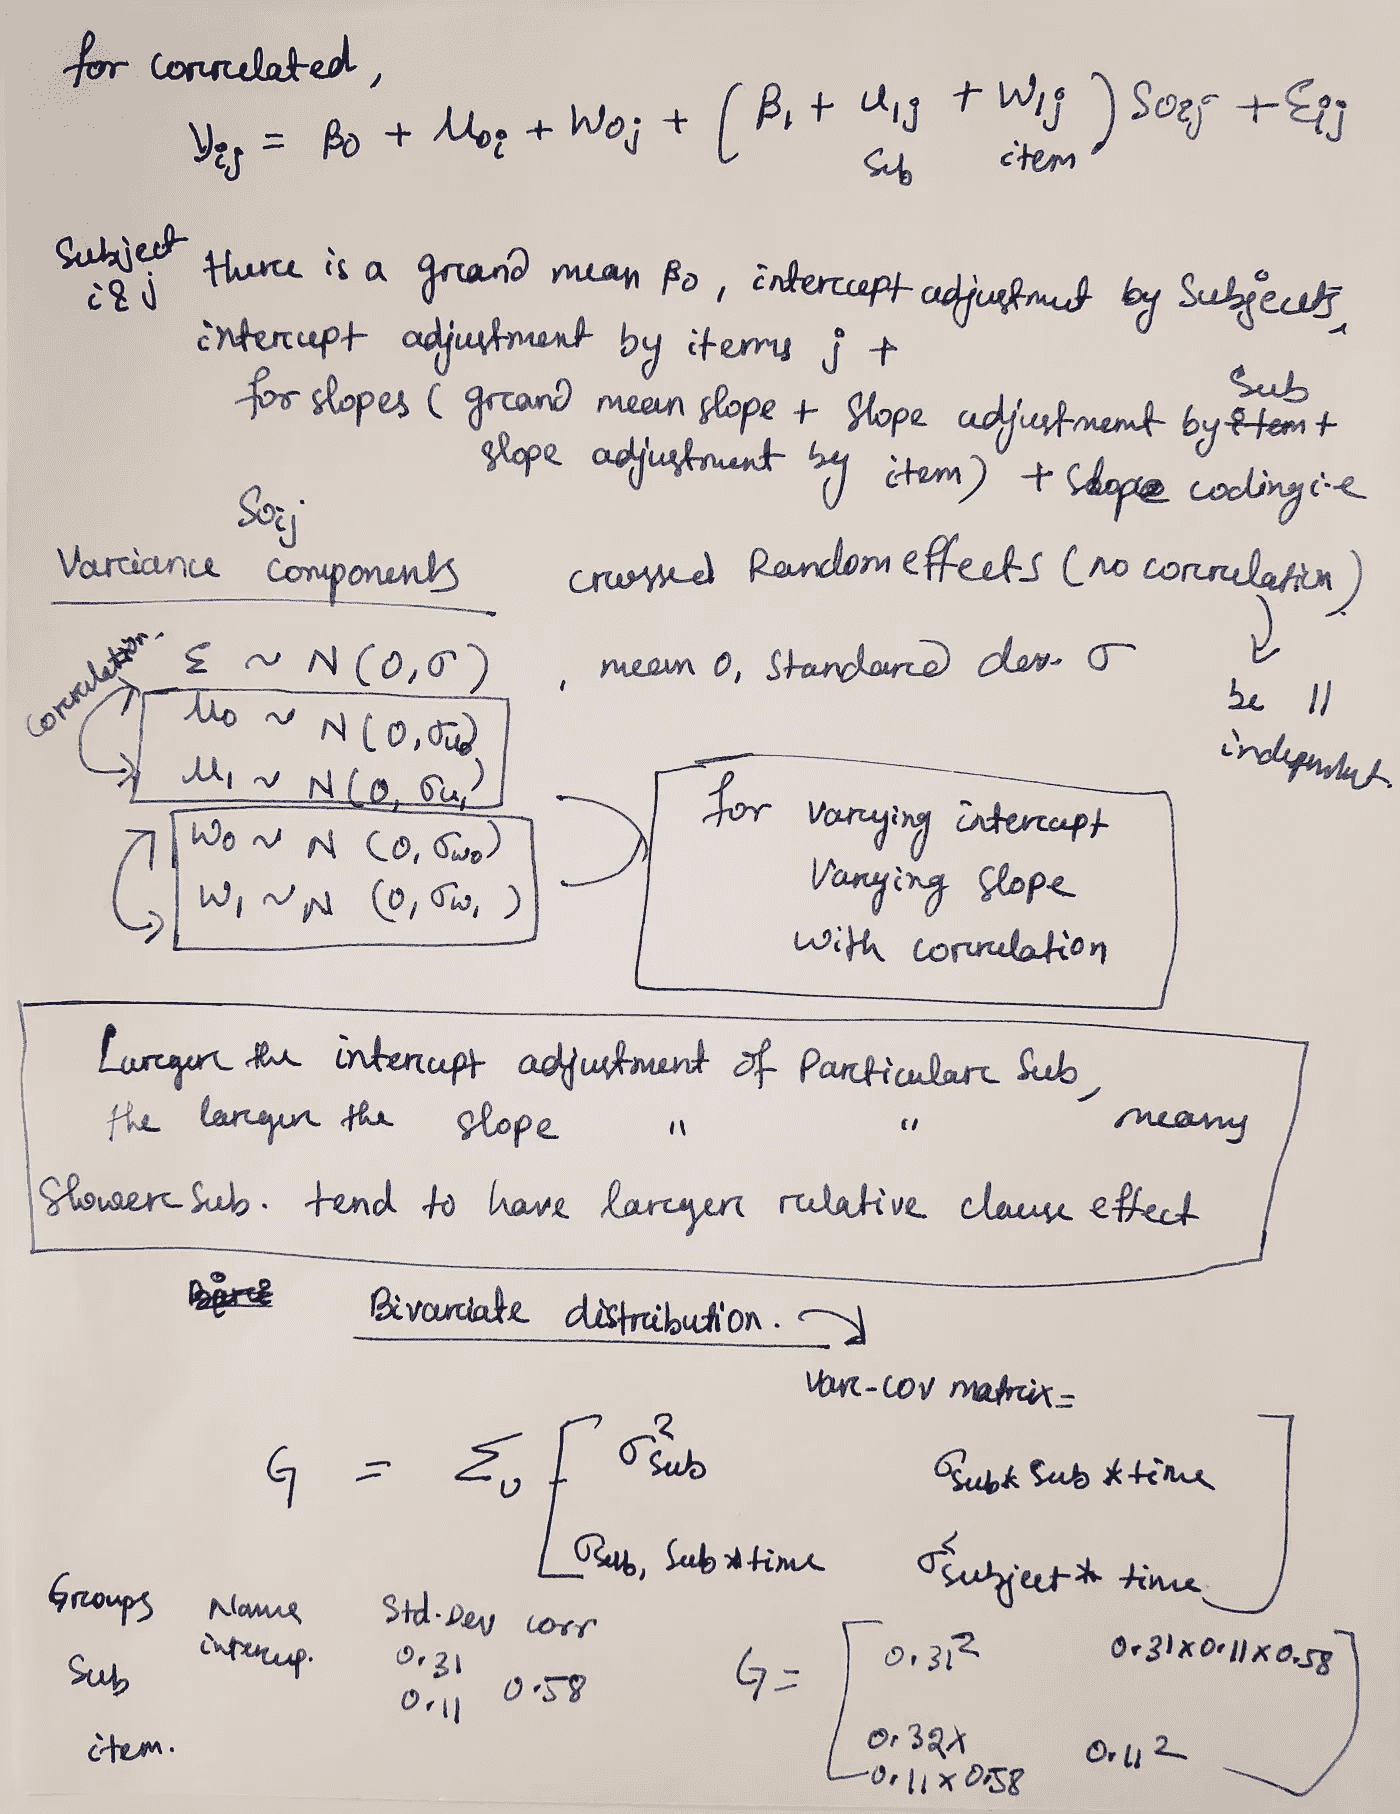 for correlated,
yij = β0 + u0i + w0j + ( β1 + u1j + w1j ) soij + εij
Sub item
Subject
i & j
there is a grand mean β0, intercept adjustment by Subjects,
intercept adjustment by items j +
for slopes ( grand mean slope + slope adjustment by item + Sub
slope adjustment by item) + slope coding i.e
Soij
Variance components
crossed Random effects (no correlation)
correlation.
ε ~ N(0,σ) , mean 0, Standard dev. σ
be ||
independent.
u0 ~ N(0,σu0)
u1 ~ N(0, σu1)
w0 ~ N (0, σw0)
w1 ~ N (0, σw1)
for varying intercept
Varying slope
with correlation
Larger the intercept adjustment of Particular Sub,
the larger the slope " " , means
Slower Sub. tend to have larger relative clause effect
Bivariate distribution.
Var-cov matrix =
G = Σu [ σ²sub σsub* sub * time
σsub, sub * time σ²subject * time ]
Groups Name Std.Dev corr
Sub intercep. 0.31
0.11 0.58
item.
G = [ 0.31² 0.31x0.11x0.58
0.32x
0.11x0.58 0.11² ]